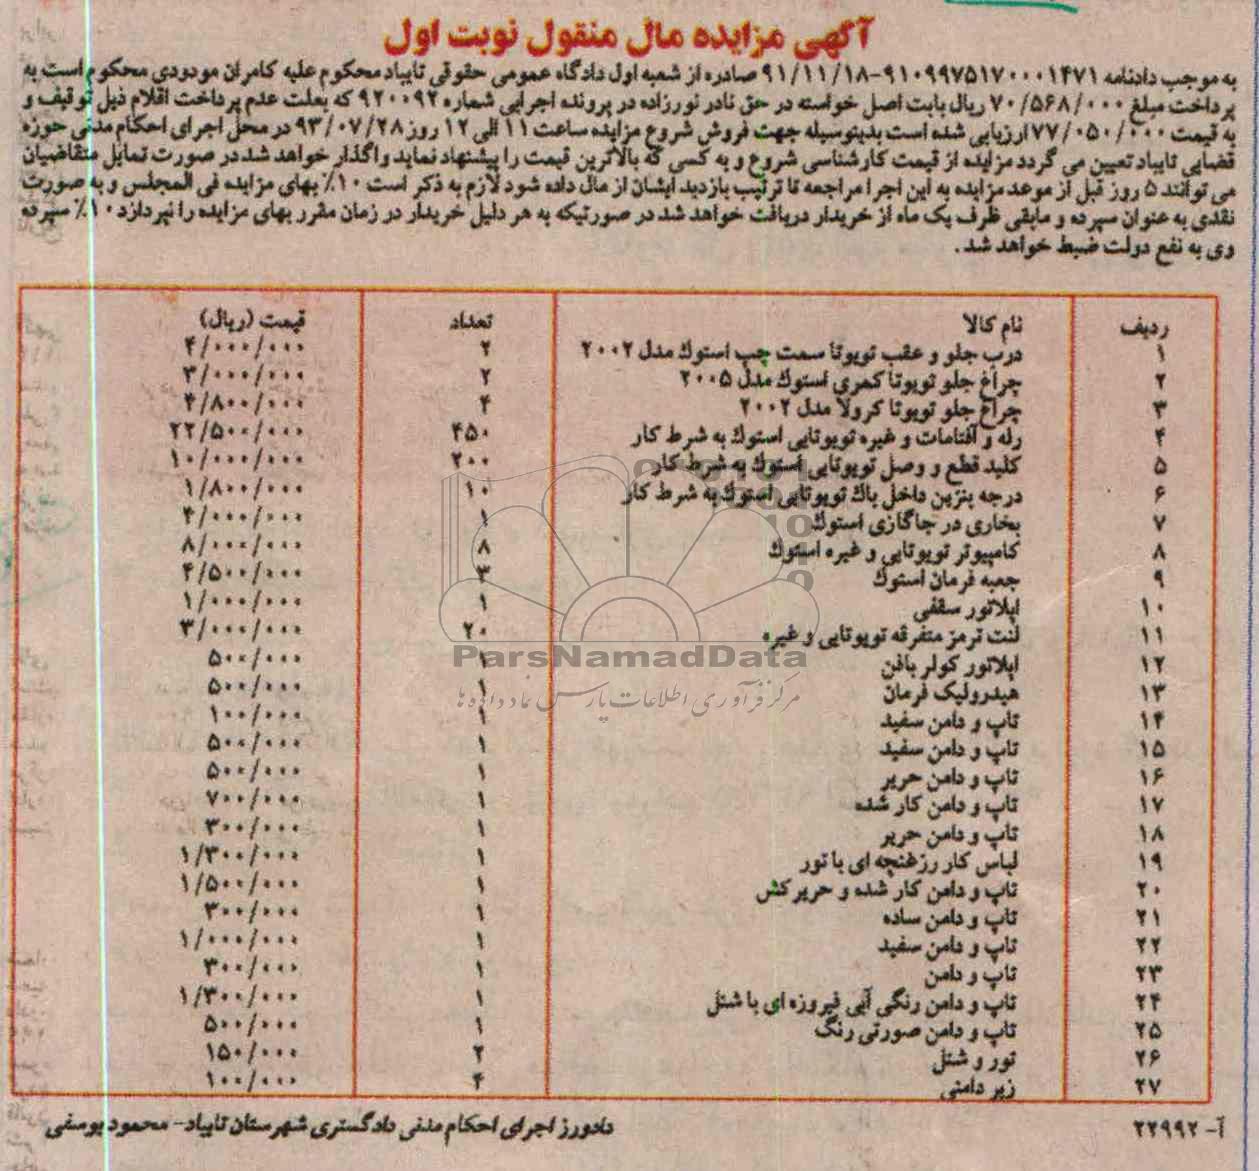 آگهی مزایده مال منقول نوبت اول
به موجب دادنامه ۹۱۰۹۹۷۵۱۷۰۰۰۱۴۷۱-۹۱/۱۱/۱۸ صادره از شعبه اول دادگاه عمومی حقوقی تایباد محکوم علیه کامران مودودی محکوم است به
پرداخت مبلغ ۷۰/۵۶۸/۰۰۰ ریال بابت اصل خواسته در حق نادر نورزاده در پرونده اجرایی شماره ۹۲۰۰۹۲ که بعلت عدم پرداخت اقلام ذیل توقیف و
به قیمت ۷۷/۰۵۰/۰۰۰ ارزیابی شده است بدینوسیله جهت فروش شروع مزایده ساعت ۱۱ الی ۱۲ روز ۹۳/۰۷/۲۸ در محل اجرای احکام مدنی حوزه
قضایی تایباد تعیین می گردد مزایده از قیمت کارشناسی شروع و به کسی که بالاترین قیمت را پیشنهاد نماید واگذار خواهد شد در صورت تمایل متقاضیان
می توانند ۵ روز قبل از موعد مزایده به این اجرا مراجعه تا ترتیب بازدید ایشان از مال داده شود لازم به ذکر است ۱۰٪ بهای مزایده فی المجلس و به صورت
نقدی به عنوان سپرده و مابقی ظرف یک ماه از خریدار دریافت خواهد شد در صورتیکه به هر دلیل خریدار در زمان مقرر بهای مزایده را نپردازد ۱۰٪ سپرده
وی به نفع دولت ضبط خواهد شد.
ردیف نام کالا تعداد قیمت (ریال)
۱ درب جلو و عقب تویوتا سمت چپ استوک مدل ۲۰۰۲ ۲ ۴/۰۰۰/۰۰۰
۲ چراغ جلو تویوتا کمری استوک مدل ۲۰۰۵ ۲ ۳/۰۰۰/۰۰۰
۳ چراغ جلو تویوتا کرولا مدل ۲۰۰۲ ۴ ۴/۸۰۰/۰۰۰
۴ رله و آفتامات و غیره تویوتایی استوک به شرط کار ۴۵۰ ۲۲/۵۰۰/۰۰۰
۵ کلید قطع و وصل تویوتایی استوک به شرط کار ۲۰۰ ۱۰/۰۰۰/۰۰۰
۶ درجه بنزین داخل باک تویوتایی استوک به شرط کار ۱۰ ۱/۸۰۰/۰۰۰
۷ بخاری در جاگازی استوک ۱ ۴/۰۰۰/۰۰۰
۸ کامپیوتر تویوتایی و غیره استوک ۸ ۸/۰۰۰/۰۰۰
۹ جعبه فرمان استوک ۳ ۴/۵۰۰/۰۰۰
۱۰ اپلاتور سقفی ۱ ۱/۰۰۰/۰۰۰
۱۱ لنت ترمز متفرقه تویوتایی و غیره ۲۰ ۳/۰۰۰/۰۰۰
۱۲ اپلاتور کولر بافن ۱ ۵۰۰/۰۰۰
۱۳ هیدرولیک فرمان ۱ ۵۰۰/۰۰۰
۱۴ تاپ و دامن سفید ۱ ۱۰۰/۰۰۰
۱۵ تاپ و دامن سفید ۱ ۵۰۰/۰۰۰
۱۶ تاپ و دامن حریر ۱ ۵۰۰/۰۰۰
۱۷ تاپ و دامن کار شده ۱ ۷۰۰/۰۰۰
۱۸ تاپ و دامن حریر ۱ ۳۰۰/۰۰۰
۱۹ لباس کار رزغنچه ای با تور ۱ ۱/۳۰۰/۰۰۰
۲۰ تاپ و دامن کار شده و حریرکش ۱ ۱/۵۰۰/۰۰۰
۲۱ تاپ و دامن ساده ۱ ۳۰۰/۰۰۰
۲۲ تاپ و دامن سفید ۱ ۱/۰۰۰/۰۰۰
۲۳ تاپ و دامن ۱ ۳۰۰/۰۰۰
۲۴ تاپ و دامن رنگی آبی فیروزه ای با شنل ۱ ۱/۳۰۰/۰۰۰
۲۵ تاپ و دامن صورتی رنگ ۱ ۵۰۰/۰۰۰
۲۶ تور و شنل ۲ ۱۵۰/۰۰۰
۲۷ زیر دامنی ۴ ۱۰۰/۰۰۰
آ- ۲۲۹۹۲ دادورز اجرای احکام مدنی دادگستری شهرستان تایباد- محمود یوسفی
ParsNamadData
مرکز فرآوری اطلاعات پارس نماد داده ها